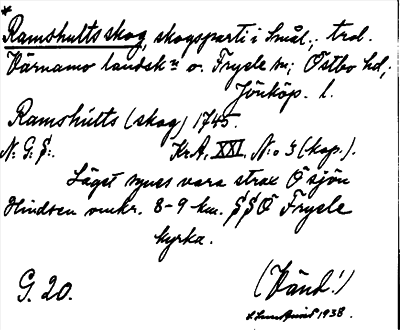 *
Ramshults skog, skogsparti i Smål.; trol.
Värnamo landskn o. Fryele sn; Östbo hd;
Jönköp. l.
Ramshúlts (skog) 1745.
N: G: §:. Kr.A. XXI. N:o 3 (kop.).
Läget synes vara strax Ö sjön
Hindsen omkr. 8-9 km. SSÖ Fryele
kyrka.
G. 20. (Vänd!)
1938.